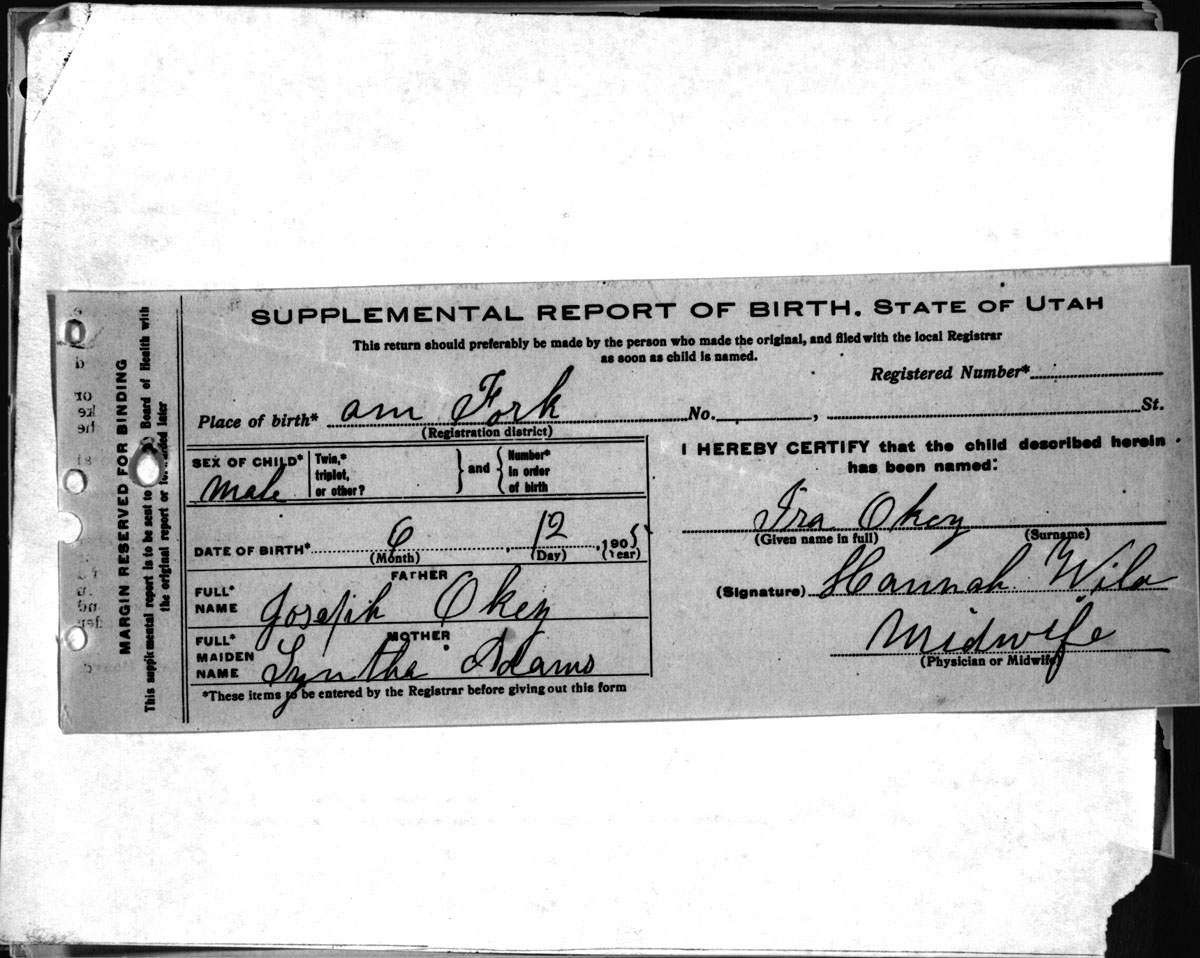 SUPPLEMENTAL REPORT OF BIRTH. STATE OF UTAH
This return should preferably be made by the person who made the original, and filed with the local Registrar
as soon as child is named.
Registered Number*
Place of birth* am Fork No. , St.
(Registration district)
SEX OF CHILD* Male
Twin,* triplet, or other? and Number* in order of birth
DATE OF BIRTH* 6 , 12 , 1905
(Month) (Day) (Year)
FATHER
FULL* NAME Joseph Okey
MOTHER
FULL* MAIDEN NAME Syntha Adams
*These items to be entered by the Registrar before giving out this form
I HEREBY CERTIFY that the child described herein
has been named:
Ira Okey
(Given name in full) (Surname)
(Signature) Hannah Wild
Midwife
(Physician or Midwife)
MARGIN RESERVED FOR BINDING
This supplemental report is to be sent to Board of Health with
the original report or forwarded later